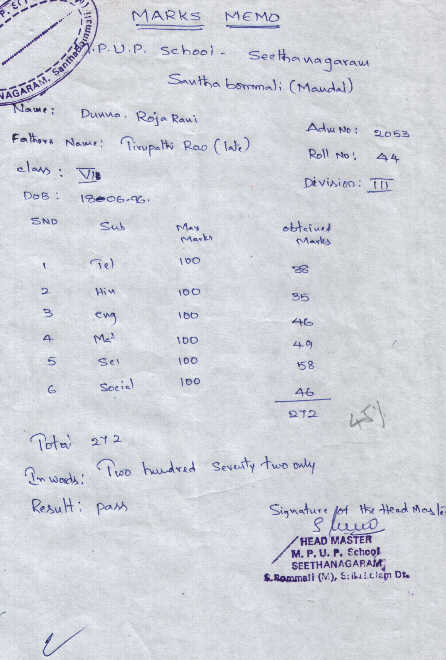 MARKS MEMO
M.P.U.P. School - Seethanagaram
Santhabommali (Mandal)
NAGARAM, Santhabommali
Name: Dunna. Roja Rani
Adm No: 2053
Fathers Name: Tirupathi Rao (late)
Roll No: 44
class: VII B
Division: III
DOB: 18-06-96.
SNO Sub Max Marks obtained Marks
1 Tel 100 38
2 Hin 100 35
3 eng 100 46
4 Mat 100 49
5 Sci 100 58
6 Social 100 46
272 45%
Total 272
In words: Two hundred Seventy two only
Result: pass
Signature of the Head Master
HEAD MASTER
M. P. U. P. School
SEETHANAGARAM,
S.Bommali (M), Srikakulam Dt.